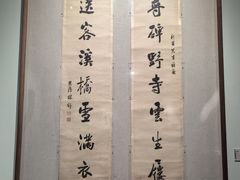 尋碑野寺雲生屨
送客溪橋雪滿衣